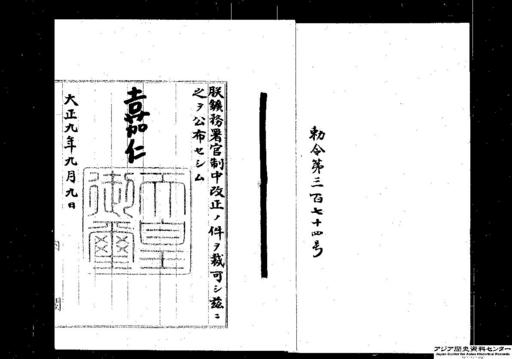 勅令第三百七十四号
朕鑛務署官制中改正ノ件ヲ裁可シ茲ニ
之ヲ公布セシム
嘉仁
天皇御璽
大正九年九月九日
内閣
アジア歴史資料センター
Japan Center for Asian Historical Records